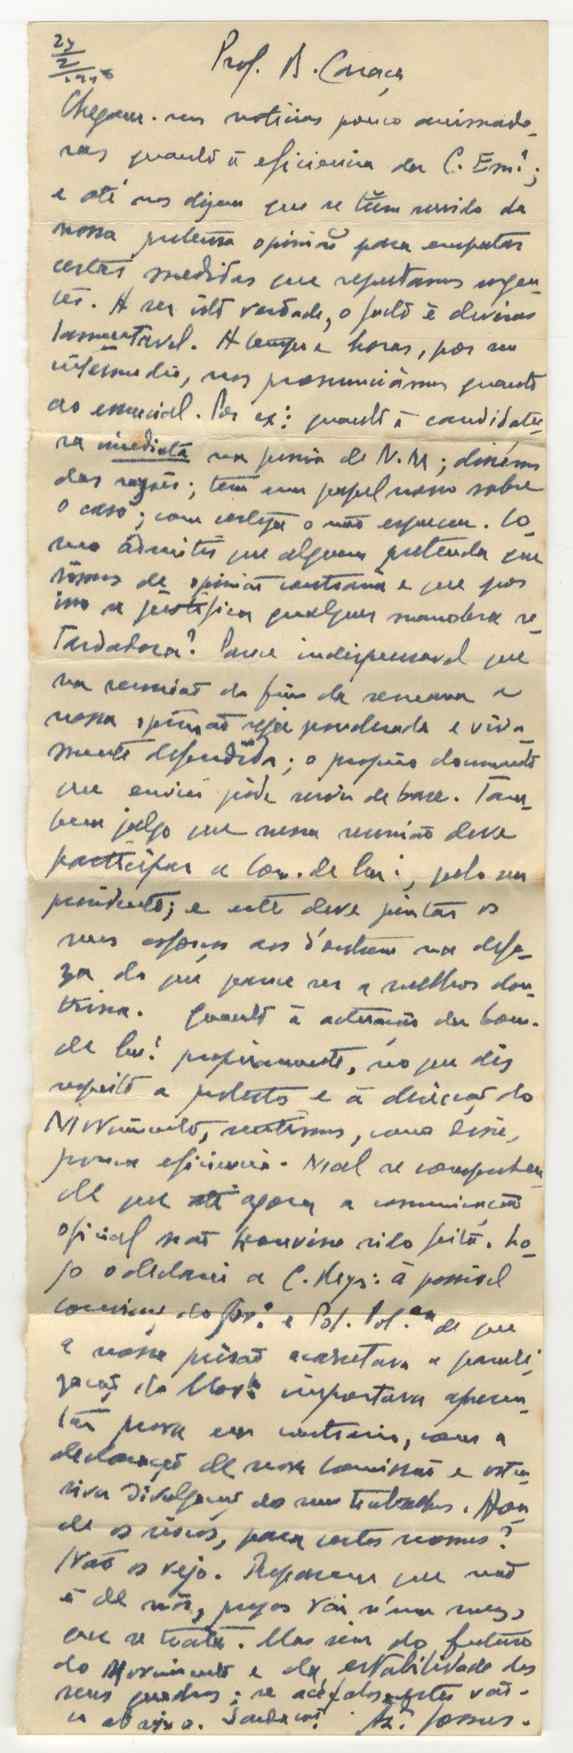 27/2/1948
Prof. B. Caraça
Chegam-nos notícias pouco animado-
ras quanto à eficiencia da C. Em.;
e até nos dizem que se têm servido da
nossa pretensa opinião para empatar
certas medidas que reputamos urgen-
tes. A ser isto verdade, o facto é deveras
lamentavel. A tempo e horas, por seu
intermedio, nos pronunciámos quanto
ao essencial. Por ex: quanto à candidatu-
ra imediata na pessoa de N.M; dissémos
das razões; tem um papel nosso sobre
o caso; com certeza o não esqueceu. Co-
mo admitir que alguem pretenda que
somos de opinião contraria e que por
isso se justifica qualquer manobra re-
tardadora? Parece indispensavel que
na reunião do fim da semana a
nossa opinião seja ponderada e viva-
mente defendida; o proprio documento
que enviei pode servir de base. Tam-
bem julgo que nessa reunião deve
participar a Com. de , pelo seu
presidente; e este deve juntar os
seus esforços aos d'outrem na defe-
za do que parece ser a melhor dou-
trina. Quanto à actuação da Com.
de propriamente, no que diz
respeito a protestos e à direcção do
Movimento, sentimos, como disse,
pouca eficiencia. Mal se compreen-
de que até agora a comunicação
oficial não houvesse sido feita. Lo-
go o declarei a C. : à possivel
convicção do e Pol. de que
a nossa prisão acarretava a parali-
zação do Mov. importava apresen-
tar prova em contrario, com a
declaração de nova Comissão e osten-
siva divulgação dos seus trabalhos. Aon-
de os riscos, para certos nomes?
Não os vejo. Reparem que não
é de nós, presos vai n'um mez,
que se trata. Mas sim do futuro
do Movimento e da estabilidade dos
seus quadros; se acéfalos estes vão-
se abaixo. Saudações